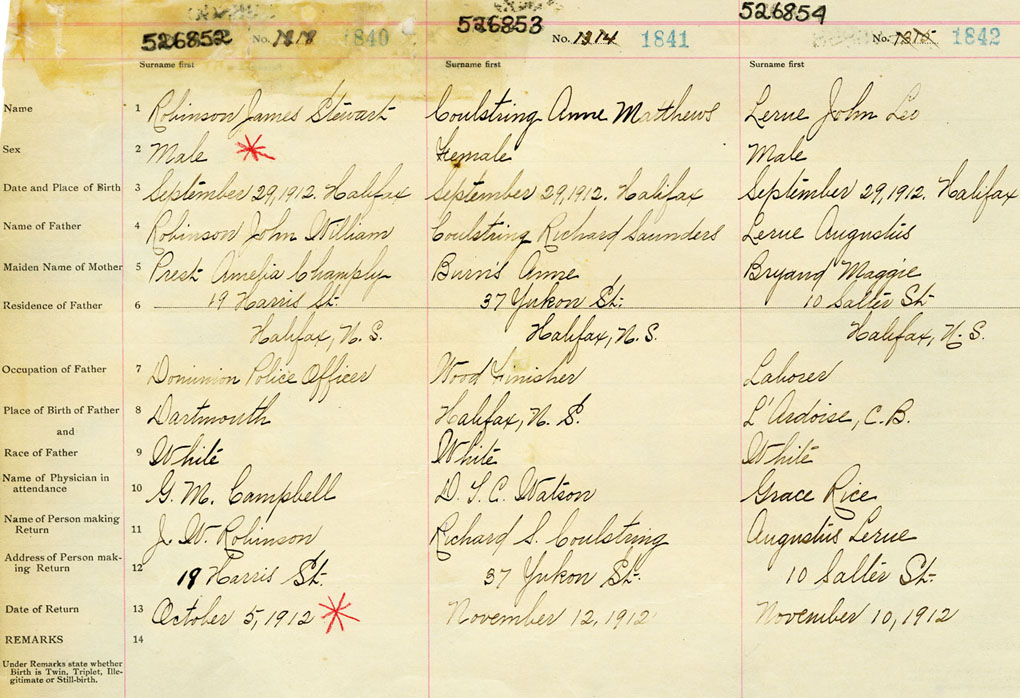 526852 526853 526854
No. 1840 No. 1314 1841 No. 1842
Surname first Surname first Surname first
Name 1 Robinson James Stewart Coulstring Anne Matthews Lerue John Leo
Sex 2 Male Female Male
Date and Place of Birth 3 September 29, 1912. Halifax September 29, 1912. Halifax September 29, 1912. Halifax
Name of Father 4 Robinson John William Coulstring Richard Saunders Lerue Augustus
Maiden Name of Mother 5 Prest Amelia Burns Anne Bryand Maggie
Residence of Father 6 19 Harris St. 37 Yukon St. 10 Salter St.
Halifax, N.S. Halifax, N.S. Halifax, N.S.
Occupation of Father 7 Dominion Police Officer Wood Finisher Laborer
Place of Birth of Father 8 Dartmouth Halifax, N.S. L'Ardoise, C.B.
and
Race of Father 9 White White White
Name of Physician in
attendance 10 G. M. Campbell D. T. C. Watson Grace Rice
Name of Person making
Return 11 J. W. Robinson Richard S. Coulstring Augustus Lerue
Address of Person mak-
ing Return 12 19 Harris St. 37 Yukon St. 10 Salter St.
Date of Return 13 October 5, 1912 November 12, 1912 November 10, 1912
REMARKS 14
Under Remarks state whether
Birth is Twin, Triplet, Ille-
gitimate or Still-birth.